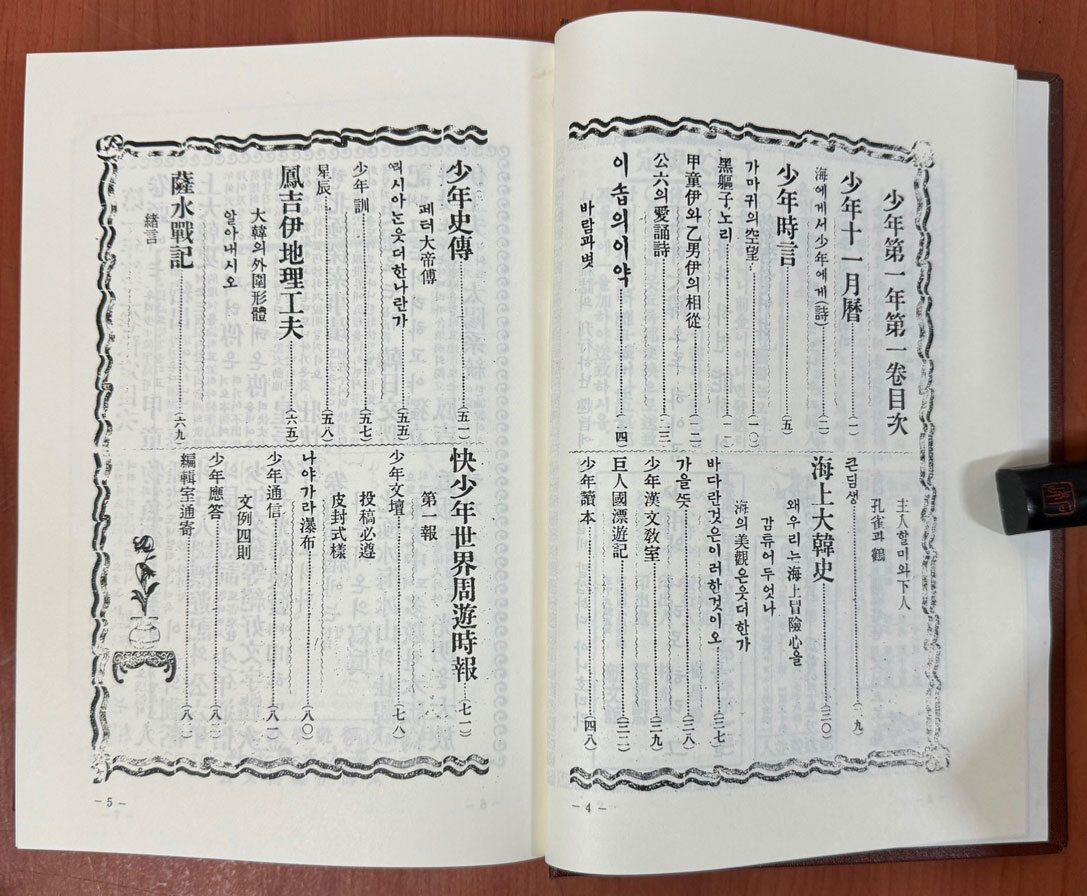 少年第一年第一卷目次
少年十一月曆(一)
海에게서少年에게(詩)(二)
少年時言(五)
가마귀의空望(一〇)
黑軀子노리(一一)
甲童伊와乙男伊의相從(一二)
公六의愛誦詩(二三)
이솝의이약(二四)
바람과볏
主人할미와下人
孔雀과鶴
큰딤생(二九)
海上大韓史(三〇)
왜우리는海上冒險心을
감튜어두엇나
海의美觀은웃더한가
바다란것은이러한것이오(三七)
가을뜻(三八)
少年漢文敎室(三九)
巨人國漂遊記(三二)
少年讀本(四八)
— 4 —
少年史傳(五一)
페터大帝傳
러시아는웃더한나란가(五五)
少年訓(五七)
星辰(五八)
鳳吉伊地理工夫(六五)
大韓의外圍形體
알아내시오
薩水戰記(六九)
緖言
快少年世界周遊時報(七一)
第一報
少年文壇(七八)
投稿必遵
皮封式樣
나야가라瀑布(八〇)
少年通信(八一)
文例四則
少年應答(八二)
編輯室通寄(八二)
— 5 —